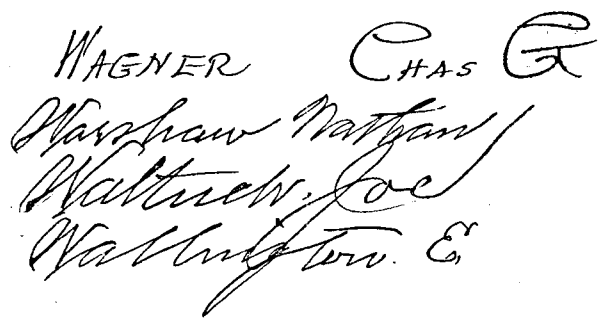 WAGNER CHAS G
Warshaw Nathan
Waltuch, Joe
Wallington. E